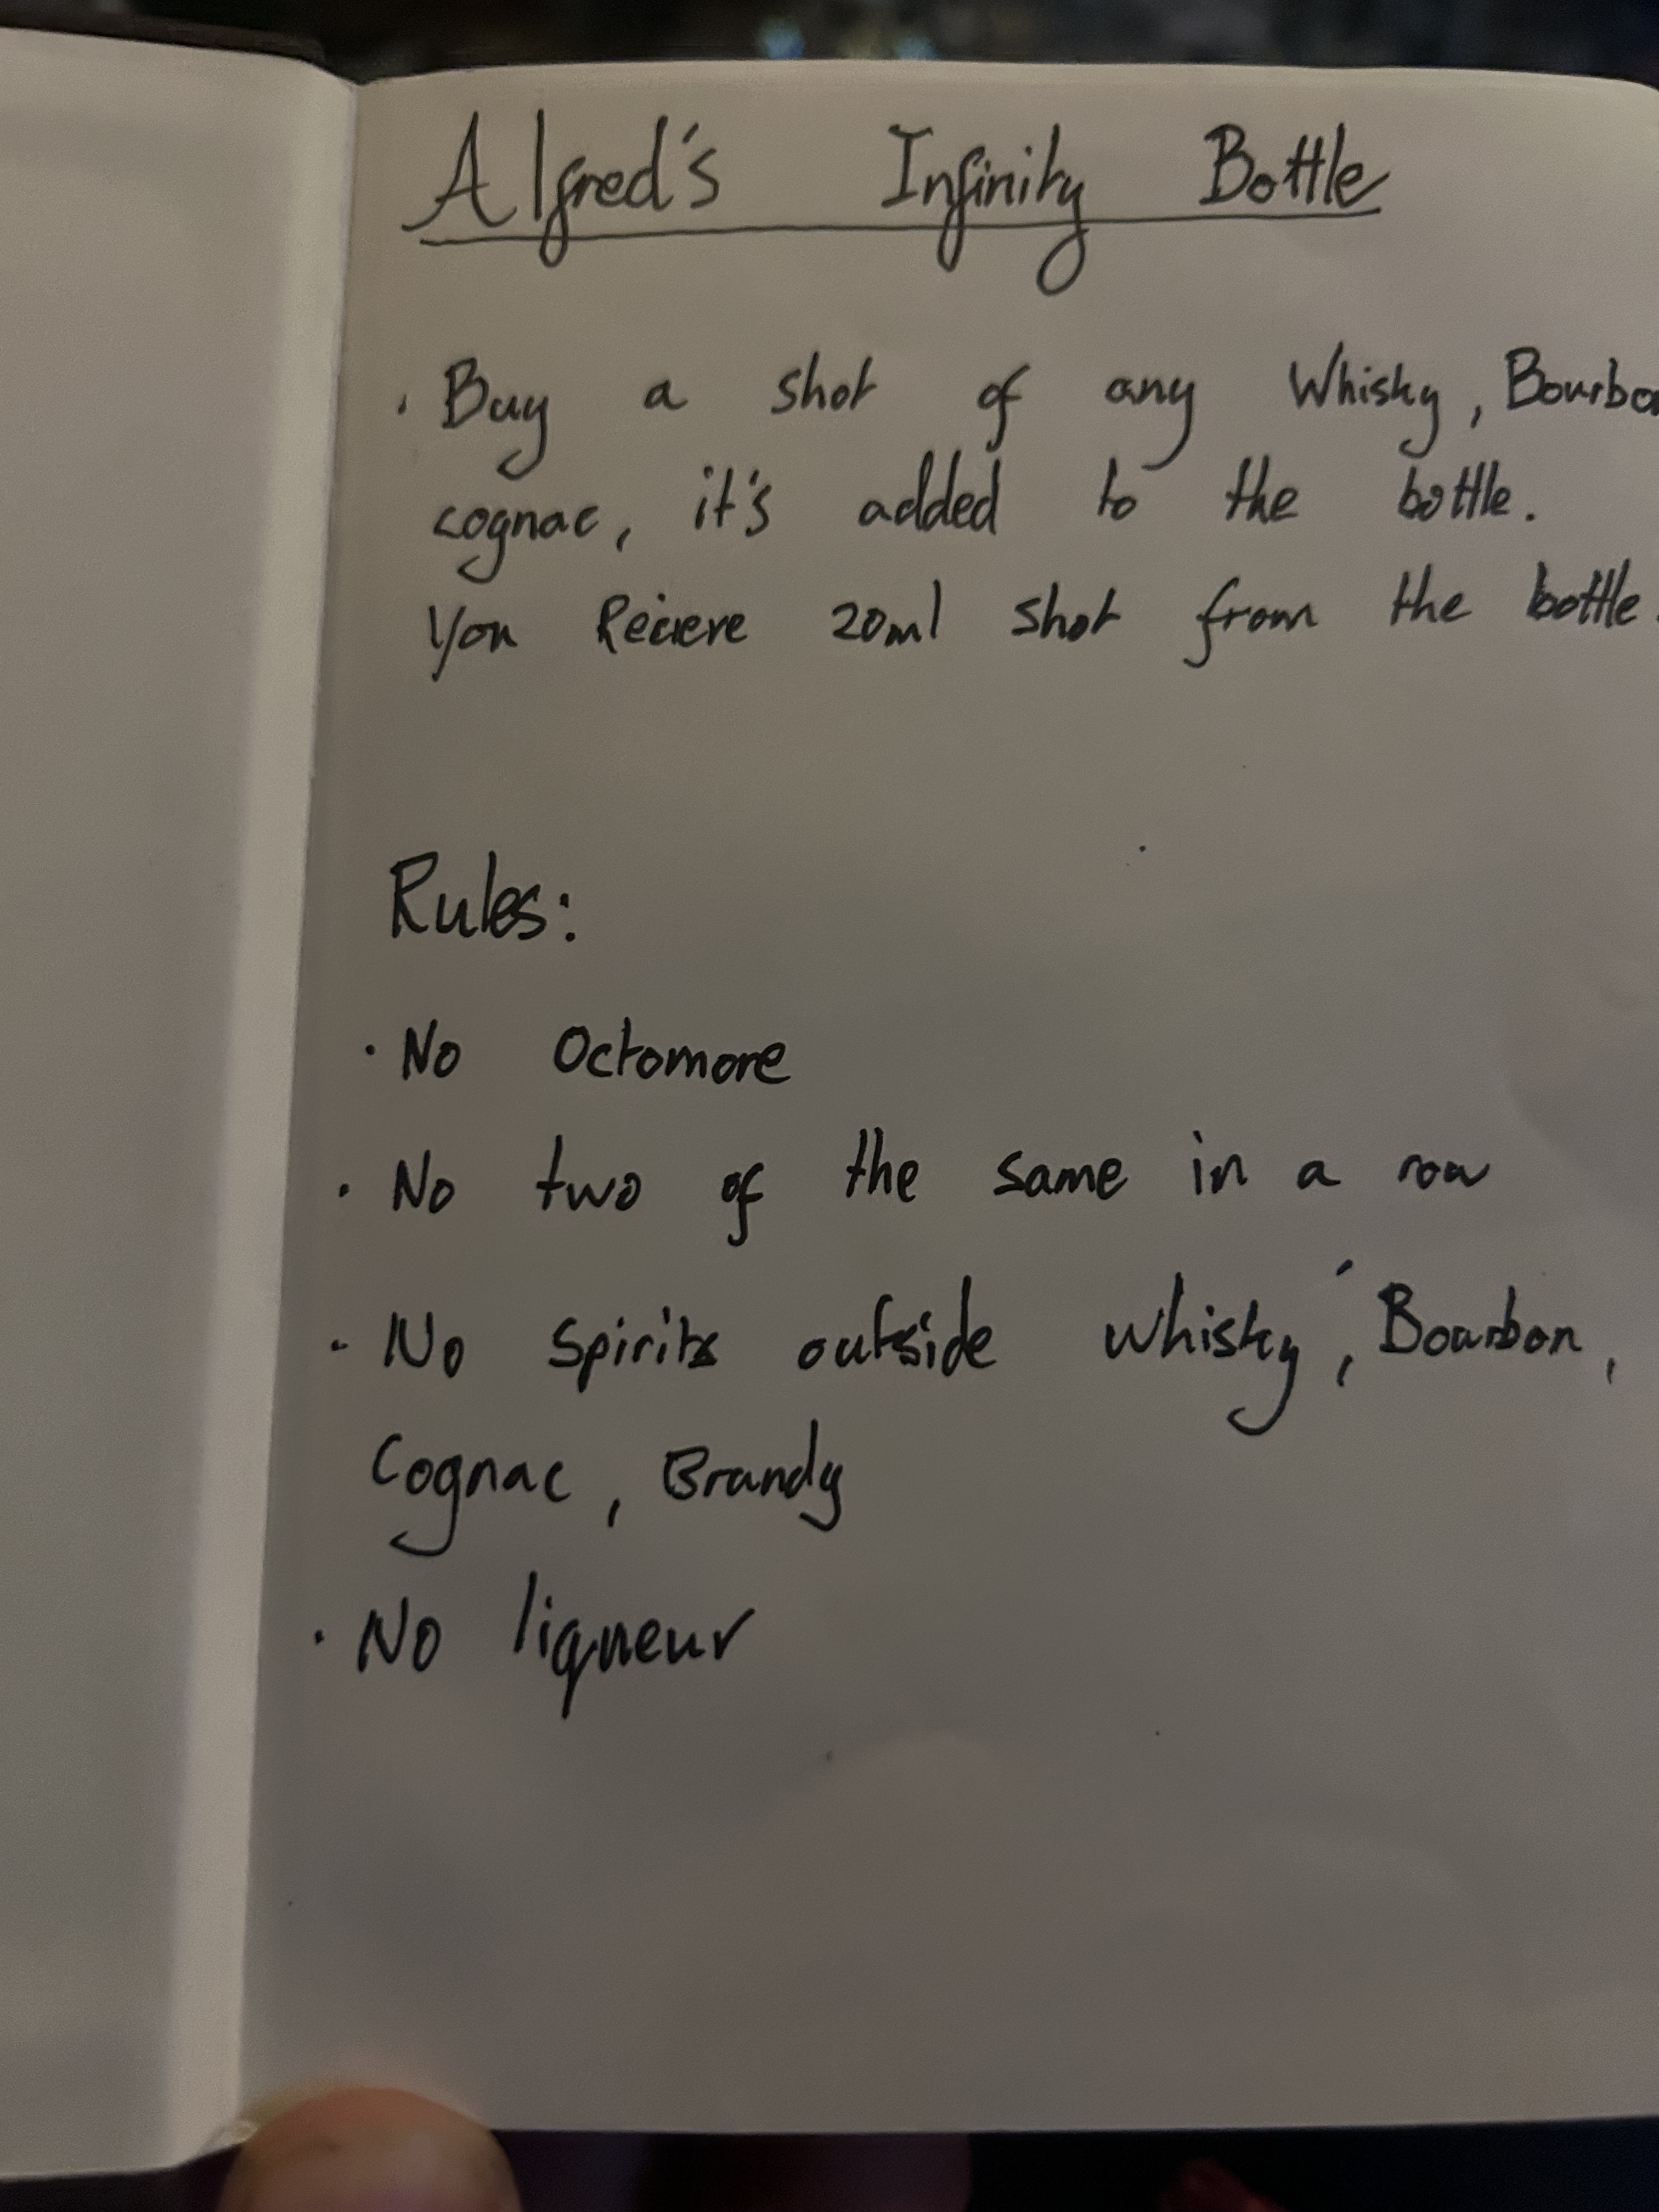 Alfred's Infinity Bottle
· Buy a shot of any Whisky, Bourbon
cognac, it's added to the bottle.
You Recieve 20ml shot from the bottle.
Rules:
· No Octomore
· No two of the same in a row
· No Spirits outside whisky, Bourbon,
Cognac, Brandy
· No liqueur